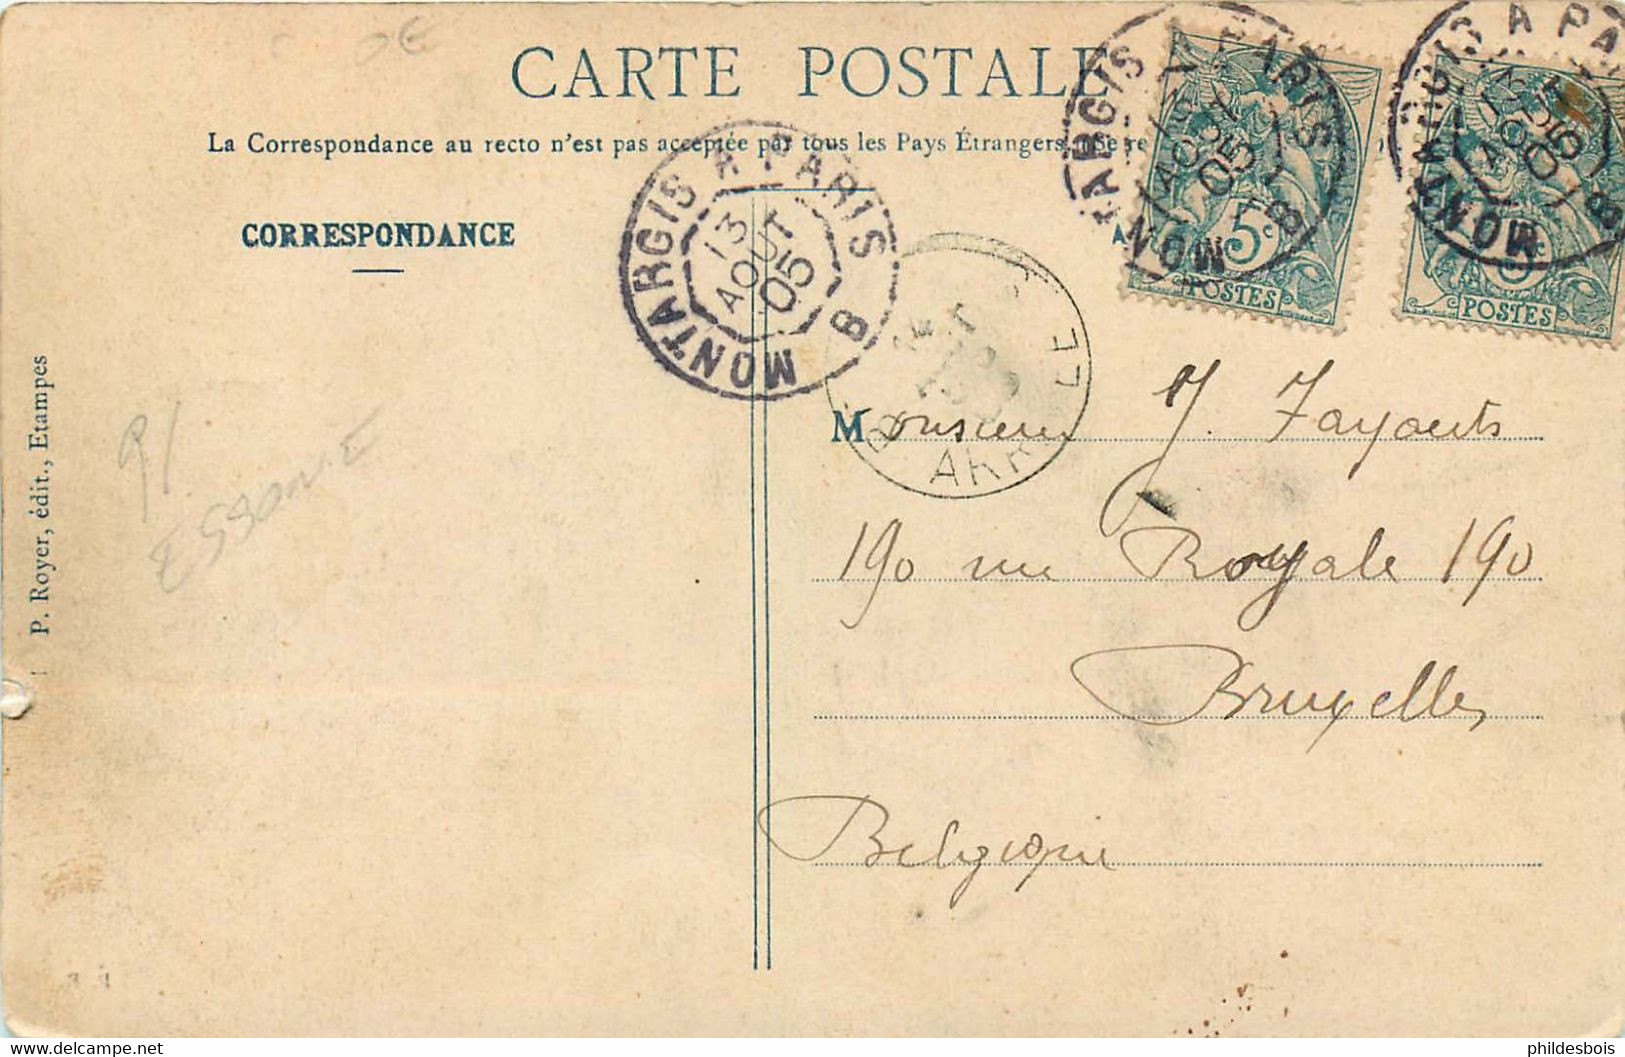 CARTE POSTALE
La Correspondance au recto n'est pas acceptée par tous les Pays Étrangers. (Se re
CORRESPONDANCE
MONTARGIS A PARIS
13
AOUT
05
B
MONTARGIS A PARIS
13
AOUT
05
B
5c
POSTES
MONTARGIS A PA
AOU
B
POSTES
Monsieur J. Fayouts
190 rue Royale 190
Bruxelles
Belgique
91
ESSONNE
DE
P. Royer, édit., Etampes
phildesbois